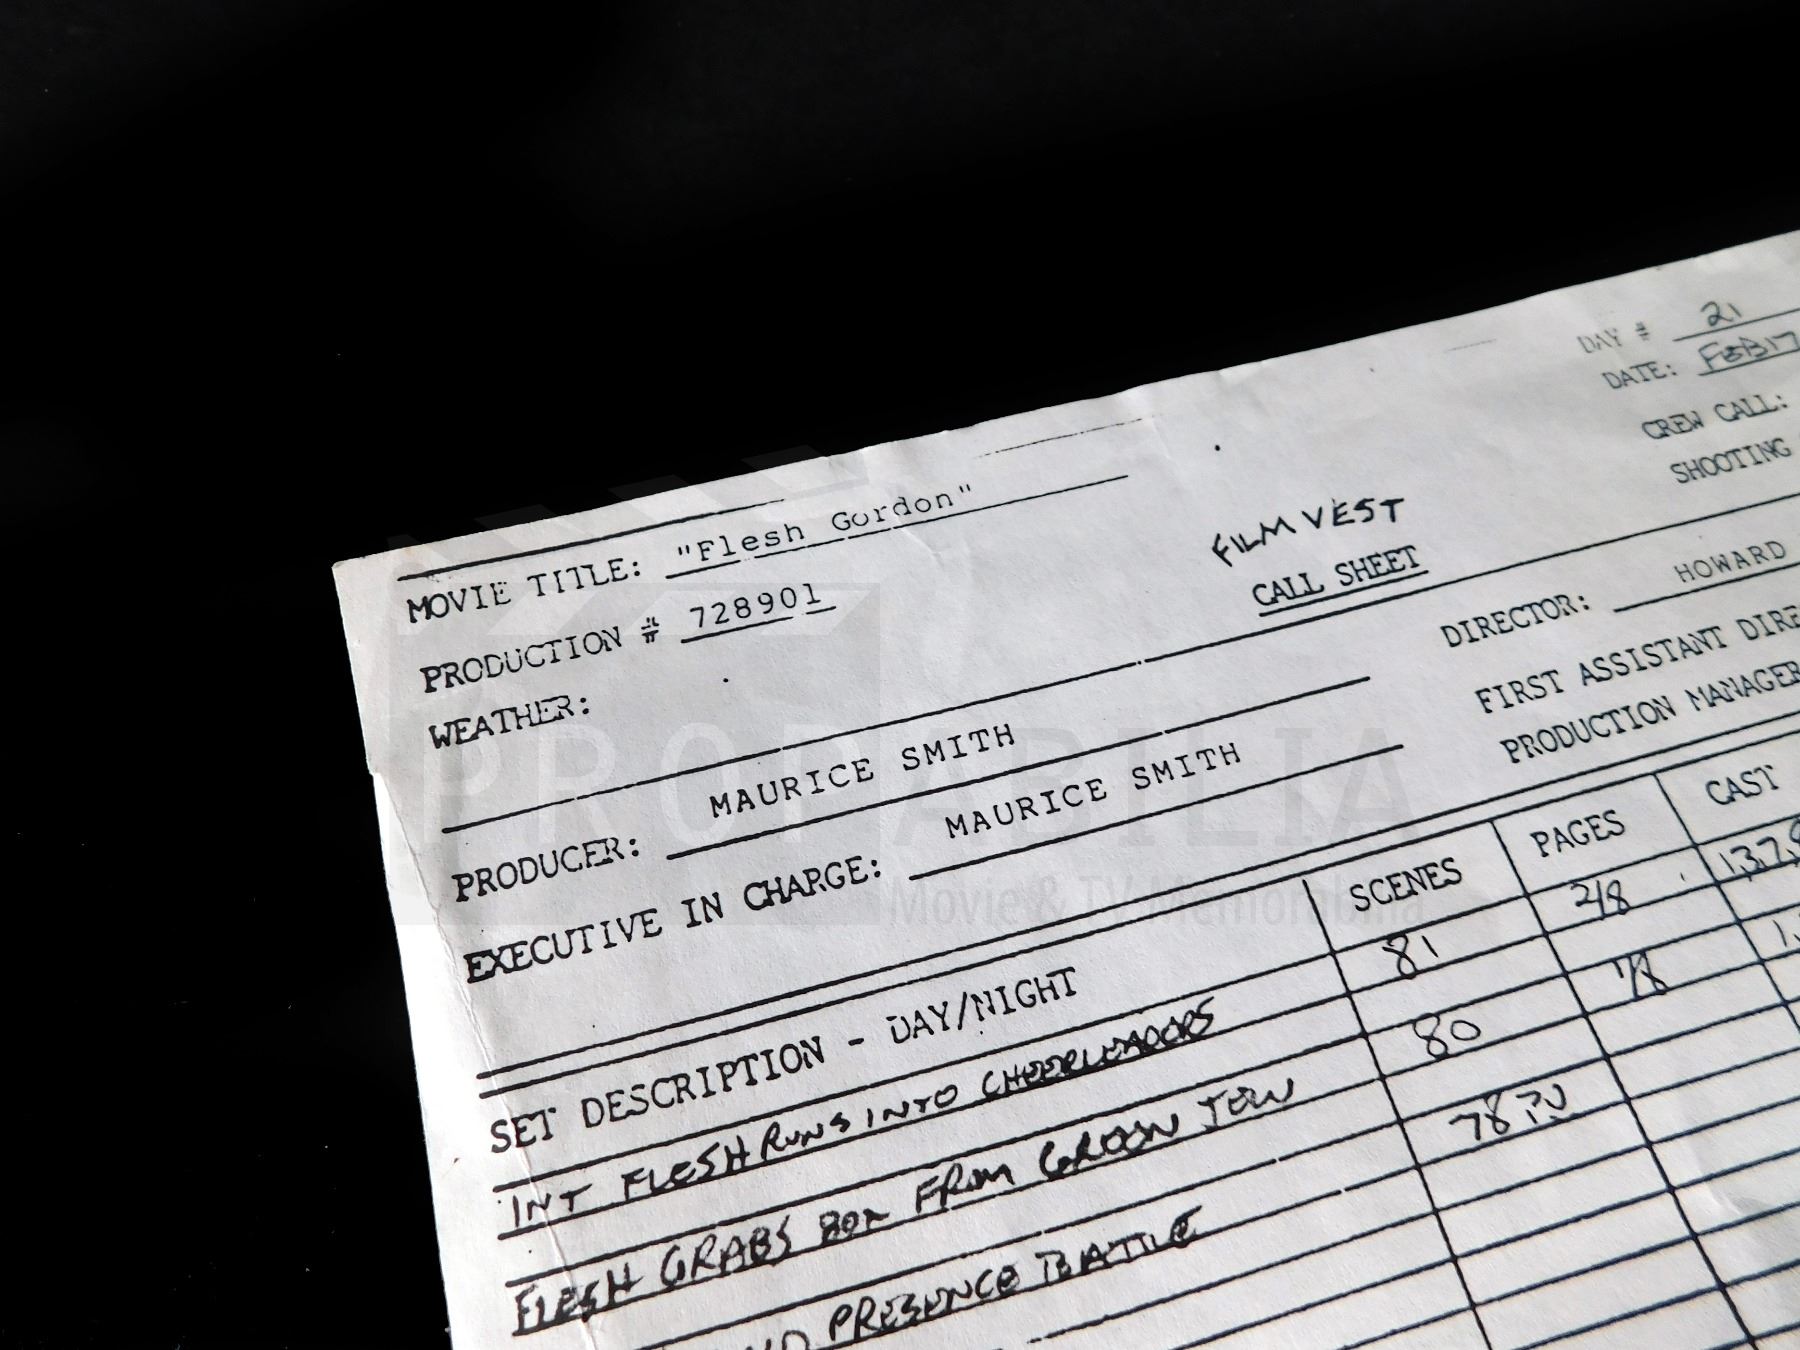 DAY # 21
DATE: FEB 17
CREW CALL:
SHOOTING
MOVIE TITLE: "Flesh Gordon"
PRODUCTION # 728901
WEATHER:
FILM VEST
CALL SHEET
DIRECTOR: HOWARD
FIRST ASSISTANT DIRE
PRODUCTION MANAGER
PRODUCER: MAURICE SMITH
EXECUTIVE IN CHARGE: MAURICE SMITH
SET DESCRIPTION - DAY/NIGHT SCENES PAGES CAST
INT FLESH RUNS INTO CHEERLEADERS 81 2/8 1,3,7,
FLESH GRABS FROM 80 1/8 1,
PRESENCE BATTLE 78
PROPABILIA
Movie & TV Memorabilia